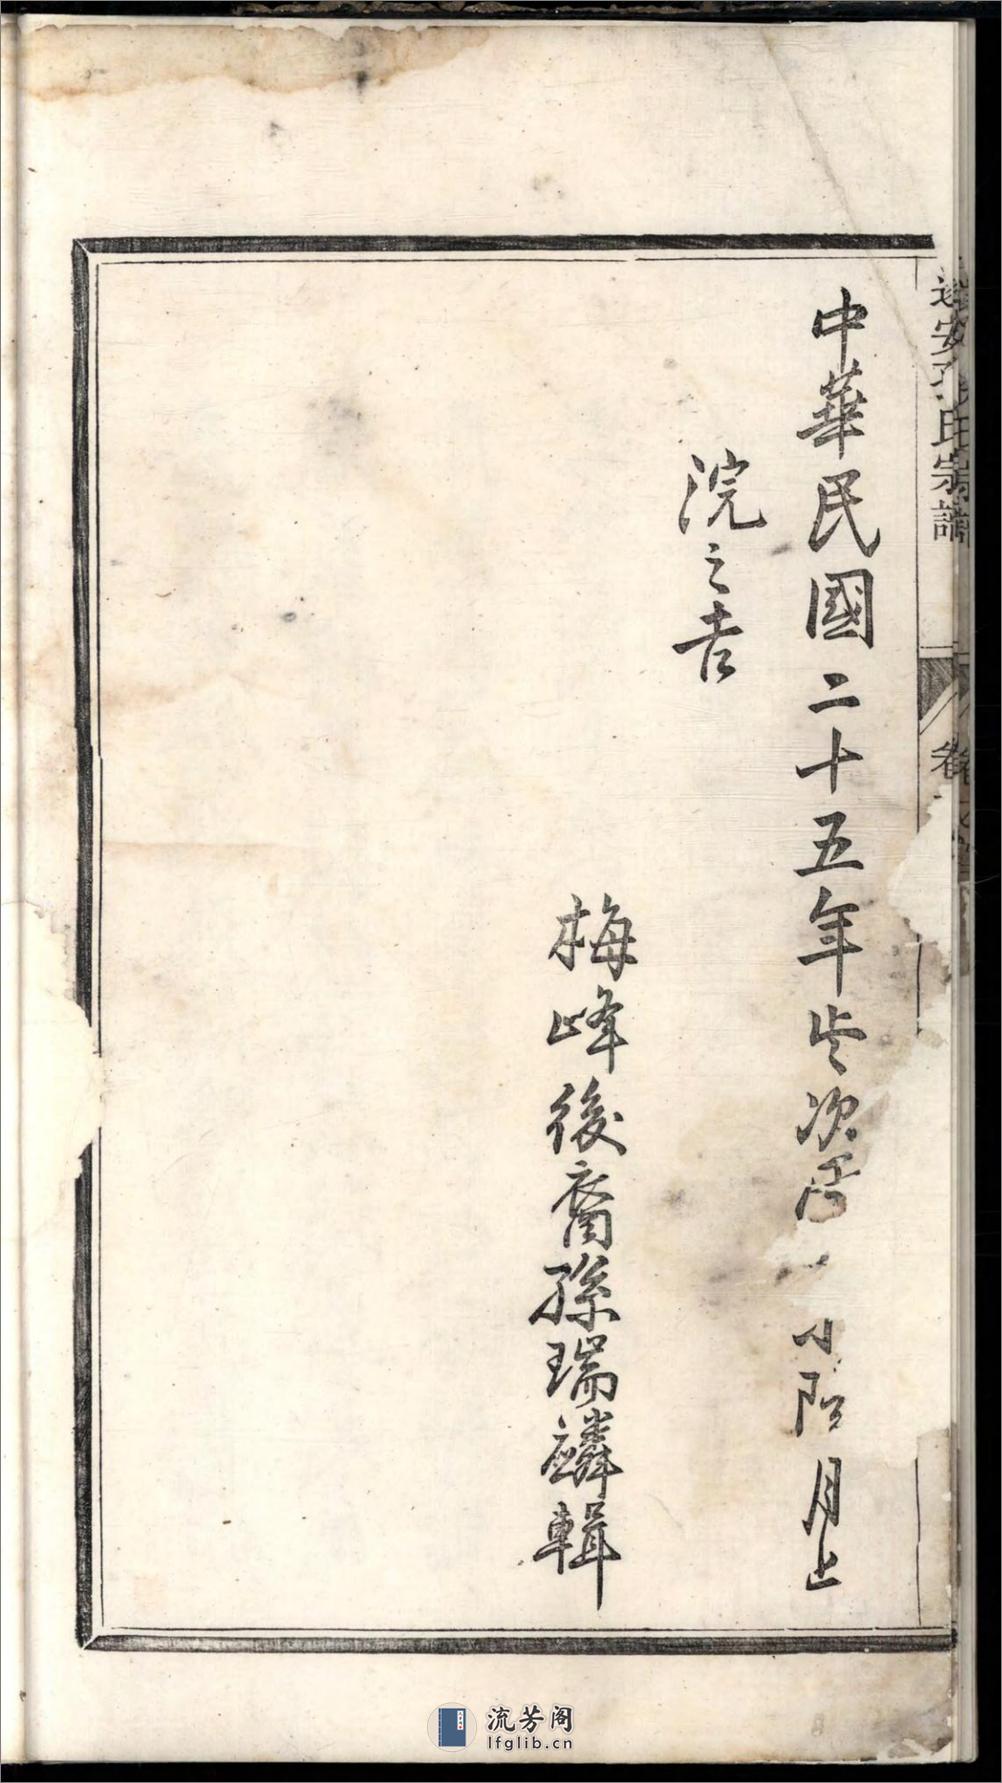 安氏宗譜 卷
中華民國二十五年歲次小陽月上
浣之吉
梅峰後裔孫瑞麟輯
流芳阁
lfglib.cn